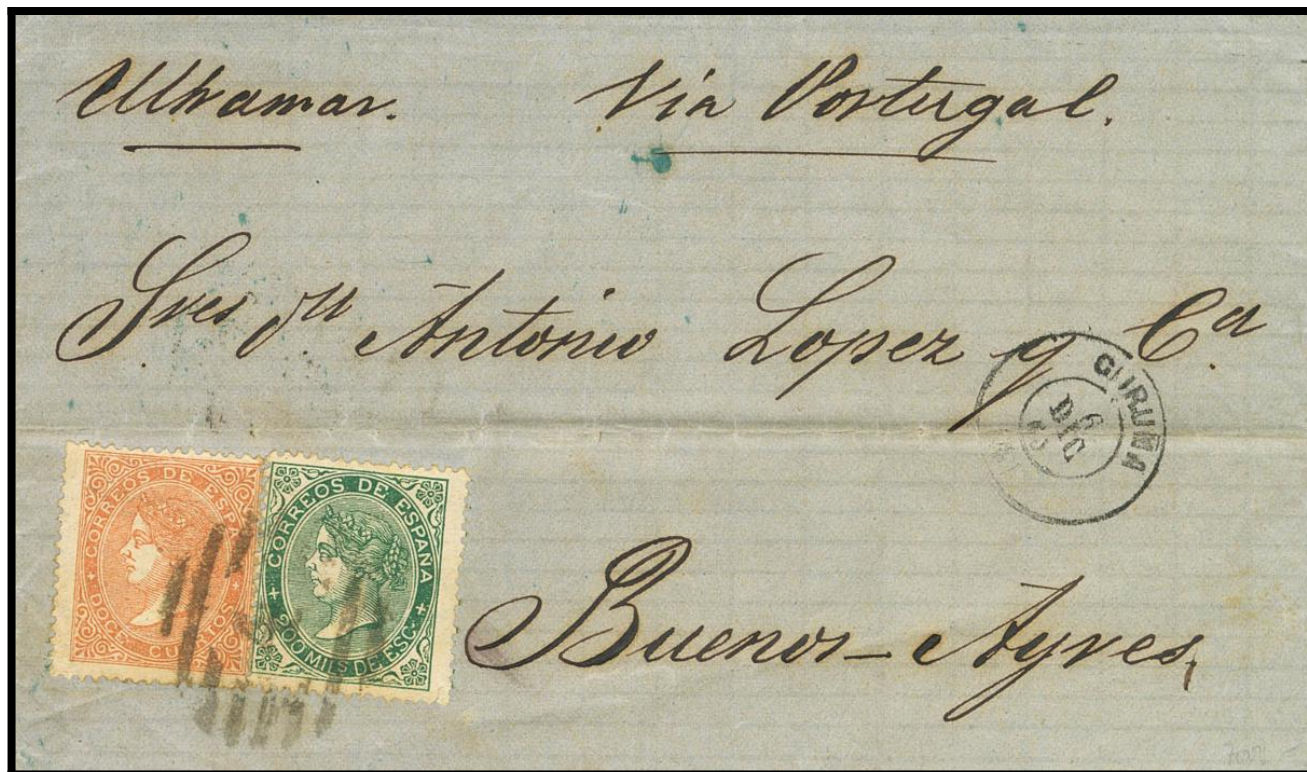 Ultramar. Via Portugal.
Sres Dn Antonio Lopez y Cª.
CORUÑA
6
DIC
CORREOS DE ESPAÑA
DOCE CUARTOS
CORREOS DE ESPAÑA
200 MILS DE ESC.
Buenos-Ayres,